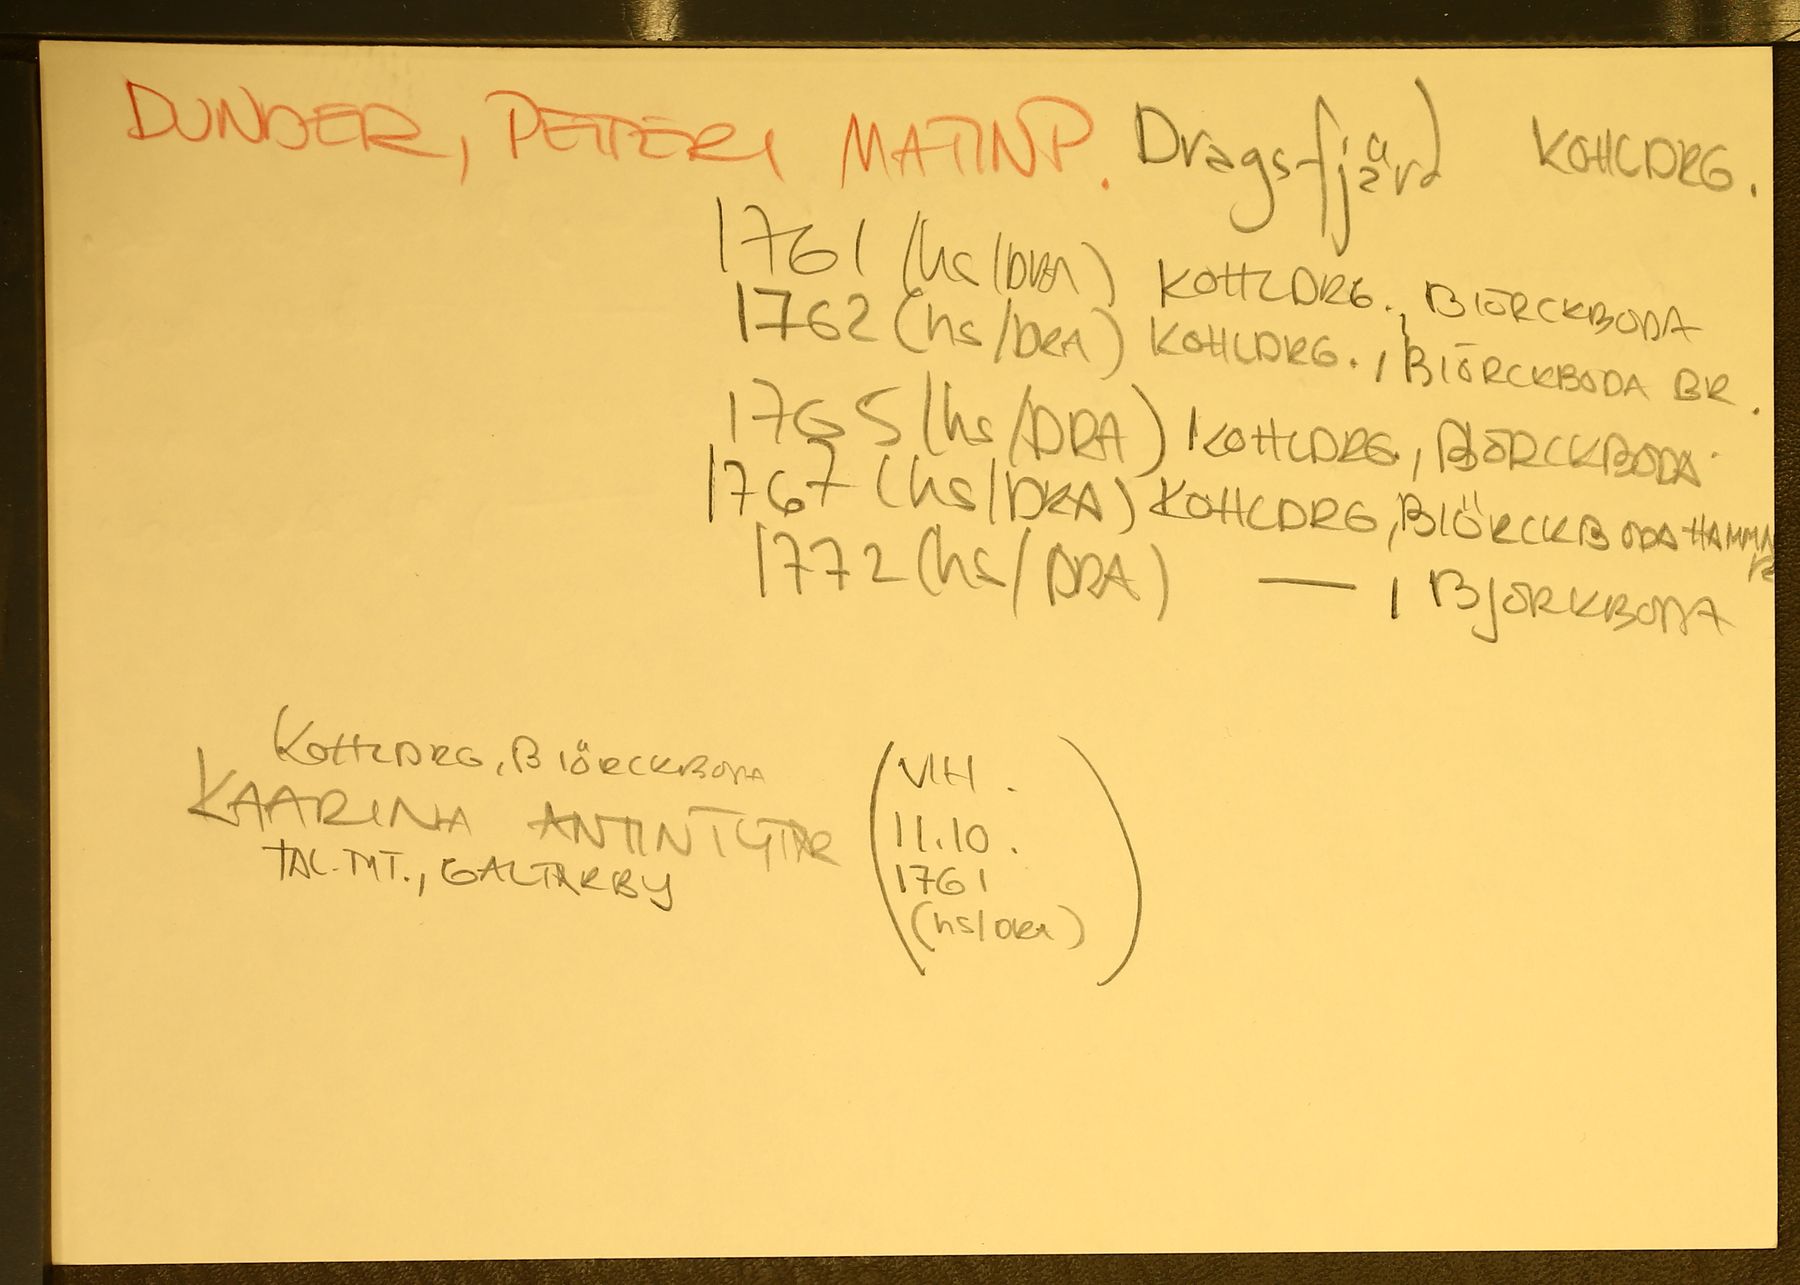 DUNDER, PETTERI MATINP. Dragsfjärd KOHLDRG.
1761 (hs/DRA) KOHLDRG., BIÖRCKBODA
1762 (hs/DRA) KOHLDRG., BIÖRCKBODA BR.
1765 (hs/DRA) KOHLDRG., BJÖRCKBODA
1767 (hs/DRA) KOHLDRG, BIÖRCKBODA HAMMAR
1772 (hs/DRA) — , BJÖRKBODA
KOHLDRG, BIÖRCKBODA
KAARINA ANTINTYTÄR
TAL.TYT., GALTARBY
(VIH.
11.10.
1761
(hs/DRA))